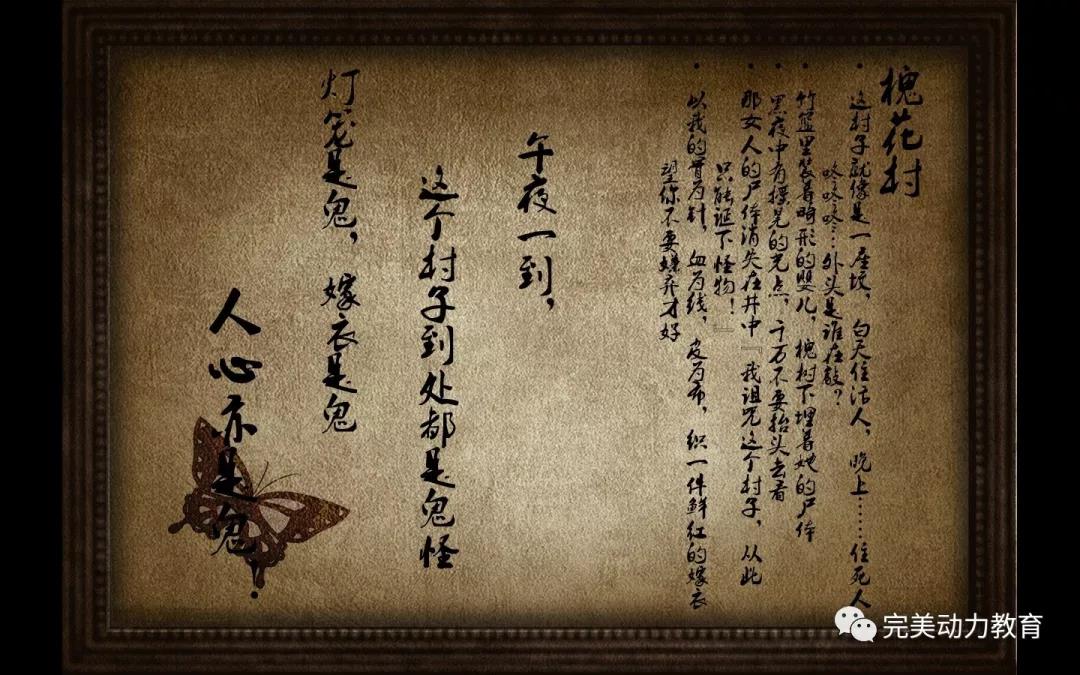 槐花村
这村子就像是一座坟，白天住活人，晚上……住死人
咚咚咚…外头是谁在敲？
竹篮里装着畸形的婴儿，槐树下埋着她的尸体
黑夜中有摸晃的光点，千万不要抬头去看
那女人的尸体消失在井中『我诅咒这个村子，从此
只能诞下怪物！』
以我的骨为针，血为线，皮为布，织一件鲜红的嫁衣
望你不要嫌弃才好
午夜一到，
这个村子到处都是鬼怪
灯笼是鬼，嫁衣是鬼
人心亦是鬼！
完美动力教育